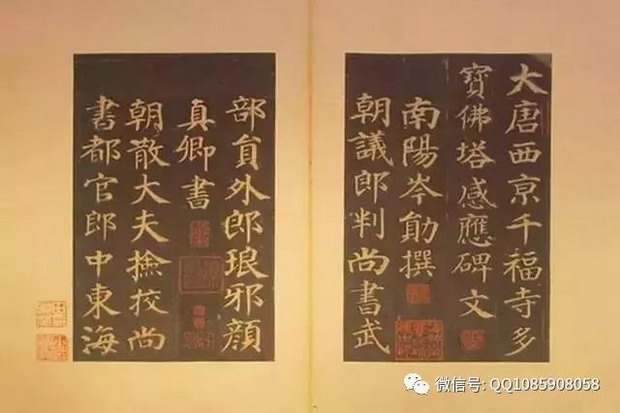 大唐西京千福寺多
寶佛塔感應碑文
南陽岑勛撰
朝議郎判尚書武
部貟外郎琅邪顏
真卿書
朝散大夫撿挍尚
書都官郎中東海
微信号: QQ1085908058